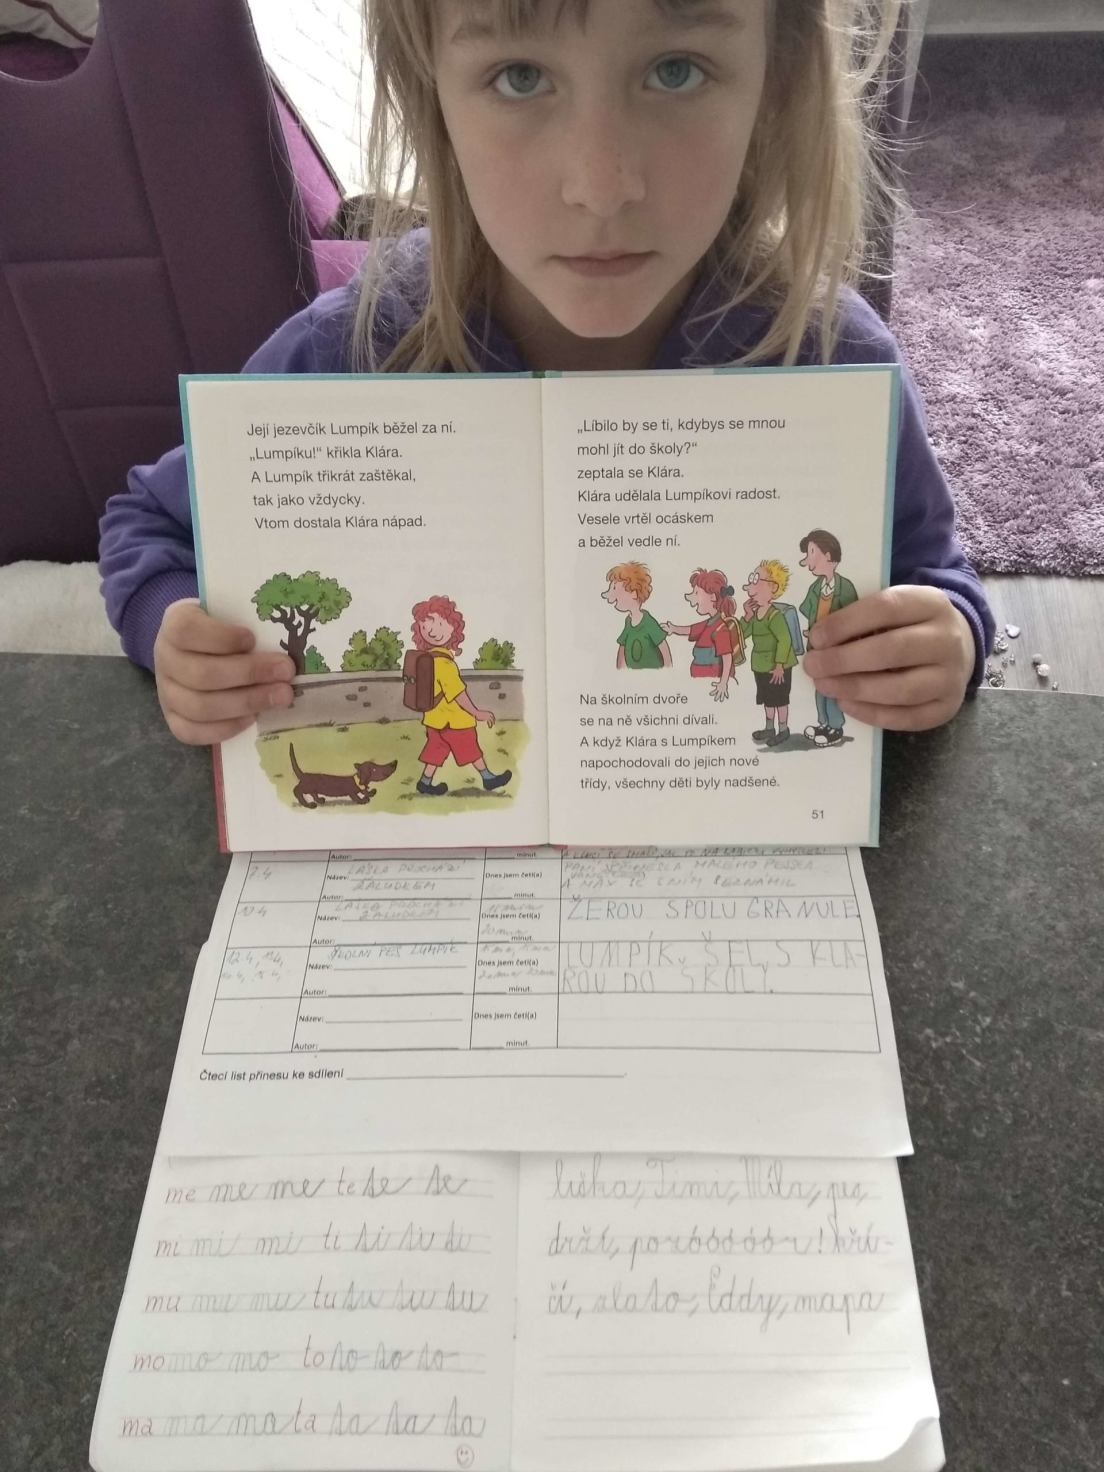 Její jezevčík Lumpík běžel za ní.
„Lumpíku!“ křikla Klára.
A Lumpík třikrát zaštěkal,
tak jako vždycky.
Vtom dostala Klára nápad.
„Líbilo by se ti, kdybys se mnou
mohl jít do školy?“
zeptala se Klára.
Klára udělala Lumpíkovi radost.
Vesele vrtěl ocáskem
a běžel vedle ní.
Na školním dvoře
se na ně všichni dívali.
A když Klára s Lumpíkem
napochodovali do jejich nové
třídy, všechny děti byly nadšené.
51
Autor: minut.
7.4 Název: Dnes jsem četl(a) MALÉHO PEJSKA
ŽALUDKEM A NÁS SE S NÍM SEZNÁMIL
Autor: minut.
LÁSKA PROCHÁZÍ
Název: ŽALUDKEM Dnes jsem četl(a) ŽEROU SPOLU GRANULE.
Autor: minut.
ŠKOLNÍ PES LUMPÍK
Název: Dnes jsem četl(a) LUMPÍK ŠEL S KLÁ-
Autor: minut. ROU DO ŠKOLY.
Název: Dnes jsem četl(a)
Autor: minut.
Čtecí list přinesu ke sdílení
me me me te te te
mi mi mi ti ti ti ti
mu mu mu tu tu tu tu
mo mo mo to to to to
ma ma ma ta ta ta ta
liška, Timi, Míla, pes,
drží, pozóóóóór! kři-
čí, zlato, Eddy, mapa